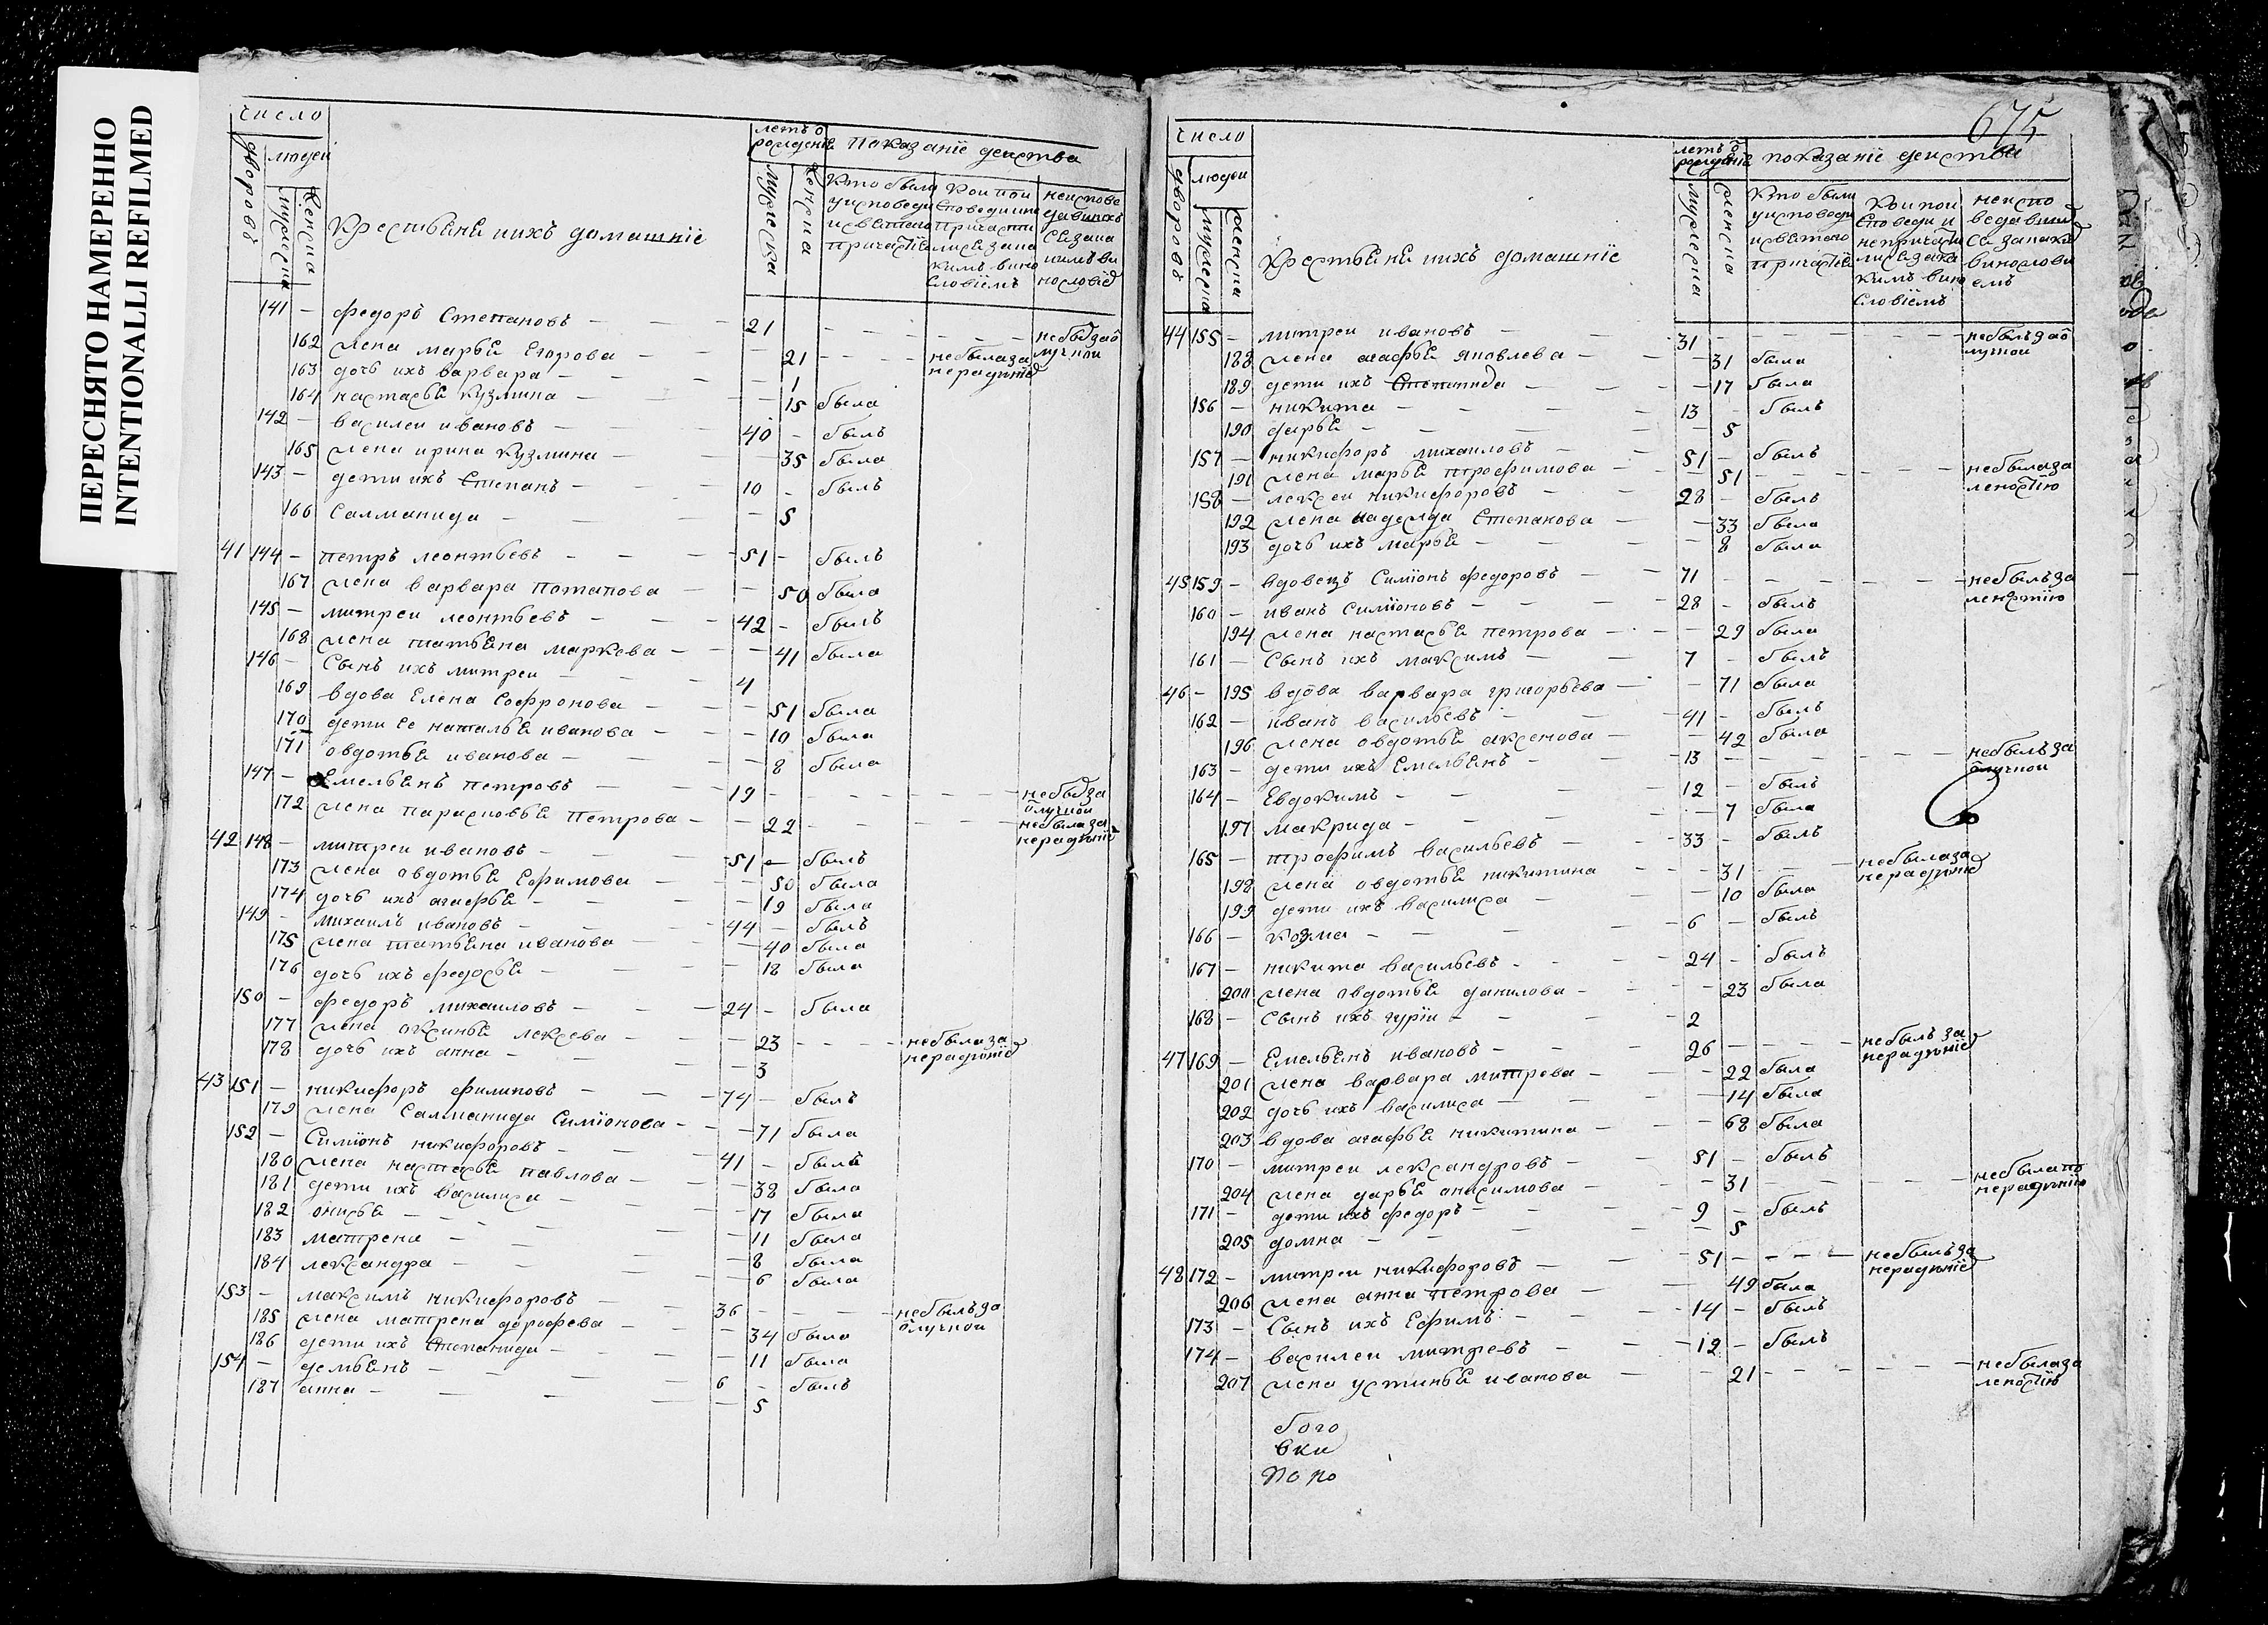 ПЕРЕСНЯТО НАМЕРЕННО
INTENTIONALLI REFILMED
число
дворовъ
людей
мужеска
женска
крестьяня и ихъ домашние
летъ о рождения
мужеска
женска
показанiе действа
кто были у исповеди и святаго причастiя
кои исповедались а не причастились и за каким виновiем
141 — федоръ Степановъ — 21 — — небы за отлучкой
162 жена марья Егорова — 21 — — небыла за нерадѣнiе
163 дочь ихъ варвара — 1
164 настасья кузмина — 15 была
142 — василеи ивановъ — 40 — былъ
165 жена ирина кузмина — 35 была
143 — дети ихъ Степанъ — 10 — былъ
166 Салманида — 5
41 144 — петръ леонтьевъ — 51 — былъ
167 жена варвара потапова — 50 была
145 — митреи леонтьевъ — 42 — былъ
168 жена татьяна маркева — 41 была
146 — Сынъ ихъ митреи — 4
169 вдова Елена Софронова — 51 была
170 дети Ее наталья иванова — 10 была
171 овдотья иванова — 8 была
147 — Емельянъ петровъ — 19 — — небы за отлучкой
172 жена парасковья петрова — 22 — — небыла за нерадѣнiе
42 148 — митреи ивановъ — 51 — былъ
173 жена овдотья Ефимова — 50 была
174 дочь ихъ агафья — 19 была
149 — михаилъ ивановъ — 44 — былъ
175 жена татьяна иванова — 40 была
176 дочь ихъ федосья — 18 была
150 — федоръ михаиловъ — 24 — была
177 жена оксинья лексева — 23 — — небыла за нерадѣнiе
178 дочь ихъ анна — 3
43 151 — никифоръ филиповъ — 74 — былъ
179 жена Салманида Симiонова — 71 была
152 — Симiонъ никифоровъ — 41 — былъ
180 жена настасья павлова — 38 была
181 дети ихъ василиса — 17 была
182 онисья — 11 была
183 матрена — 8 была
184 лександра — 6 была
153 — максимъ никифоровъ — 36 — — небылъ за отлучкой
185 жена матрена дорофева — 34 была
186 дети ихъ Степанида — 11 была
154 — демьянъ — 6 — былъ
187 анна — 5
675
число
дворовъ
людеи
мужеска
женска
крестьяня и ихъ домашнiе
летъ о рождения
мужеска
женска
показанiе действа
44 155 — митреи ивановъ — 31 — — небылъ за отлучкой
188 жена агафья яковлева — 31 была
189 дети ихъ Степанида — 17 была
156 — никита — 13 — былъ
190 дарья — 5
157 — никифоръ михаиловъ — 51 — былъ
191 жена марья трофимова — 51 — — небыла за леностiю
158 — лексеи никифоровъ — 28 — былъ
192 жена надежда Степанова — 33 была
193 дочь ихъ марья — 8 была
45 159 — вдовецъ Симiонъ федоровъ — 71 — — небылъ за леностiю
160 — иванъ Симiоновъ — 28 — былъ
194 жена настасья петрова — 29 была
161 — Сынъ ихъ максимъ — 7 — былъ
46 — 195 вдова варвара григорьева — 71 была
162 — иванъ васильевъ — 41 — былъ
196 жена овдотья аксенова — 42 была
163 — дети ихъ Емельянъ — 13 — — небылъ за отлучкой
164 — Евдокимъ — 12 — былъ
197 макрида — 7 была
165 — трофимъ васильевъ — 33 — былъ
198 жена овдотья никитина — 31 — — небыла за нерадѣнiе
199 дети ихъ василиса — 10 была
166 — козма — 6 — былъ
167 — никита васильевъ — 24 — былъ
200 жена овдотья данилова — 23 была
168 — Сынъ ихъ гурiи — 2
47 169 — Емельянъ ивановъ — 26 — — небылъ за нерадѣнiе
201 жена варвара митрева — 22 была
202 дочь ихъ василиса — 14 была
203 вдова агафья никитина — 68 была
170 — митреи лександровъ — 51 — былъ
204 жена дарья онисимова — 31 — — небыла по нерадѣнiю
171 — дети ихъ федоръ — 9 — былъ
205 домна — 5
48 172 — митреи никифоровъ — 51 — — небылъ за нерадѣнiе
206 жена анна петрова — 49 была
173 — Сынъ ихъ Ефимъ — 14 — былъ
174 — василеи митревъ — 19 — былъ
207 жена устинья иванова — 21 — — небыла за леностiю
бого
вки
по по